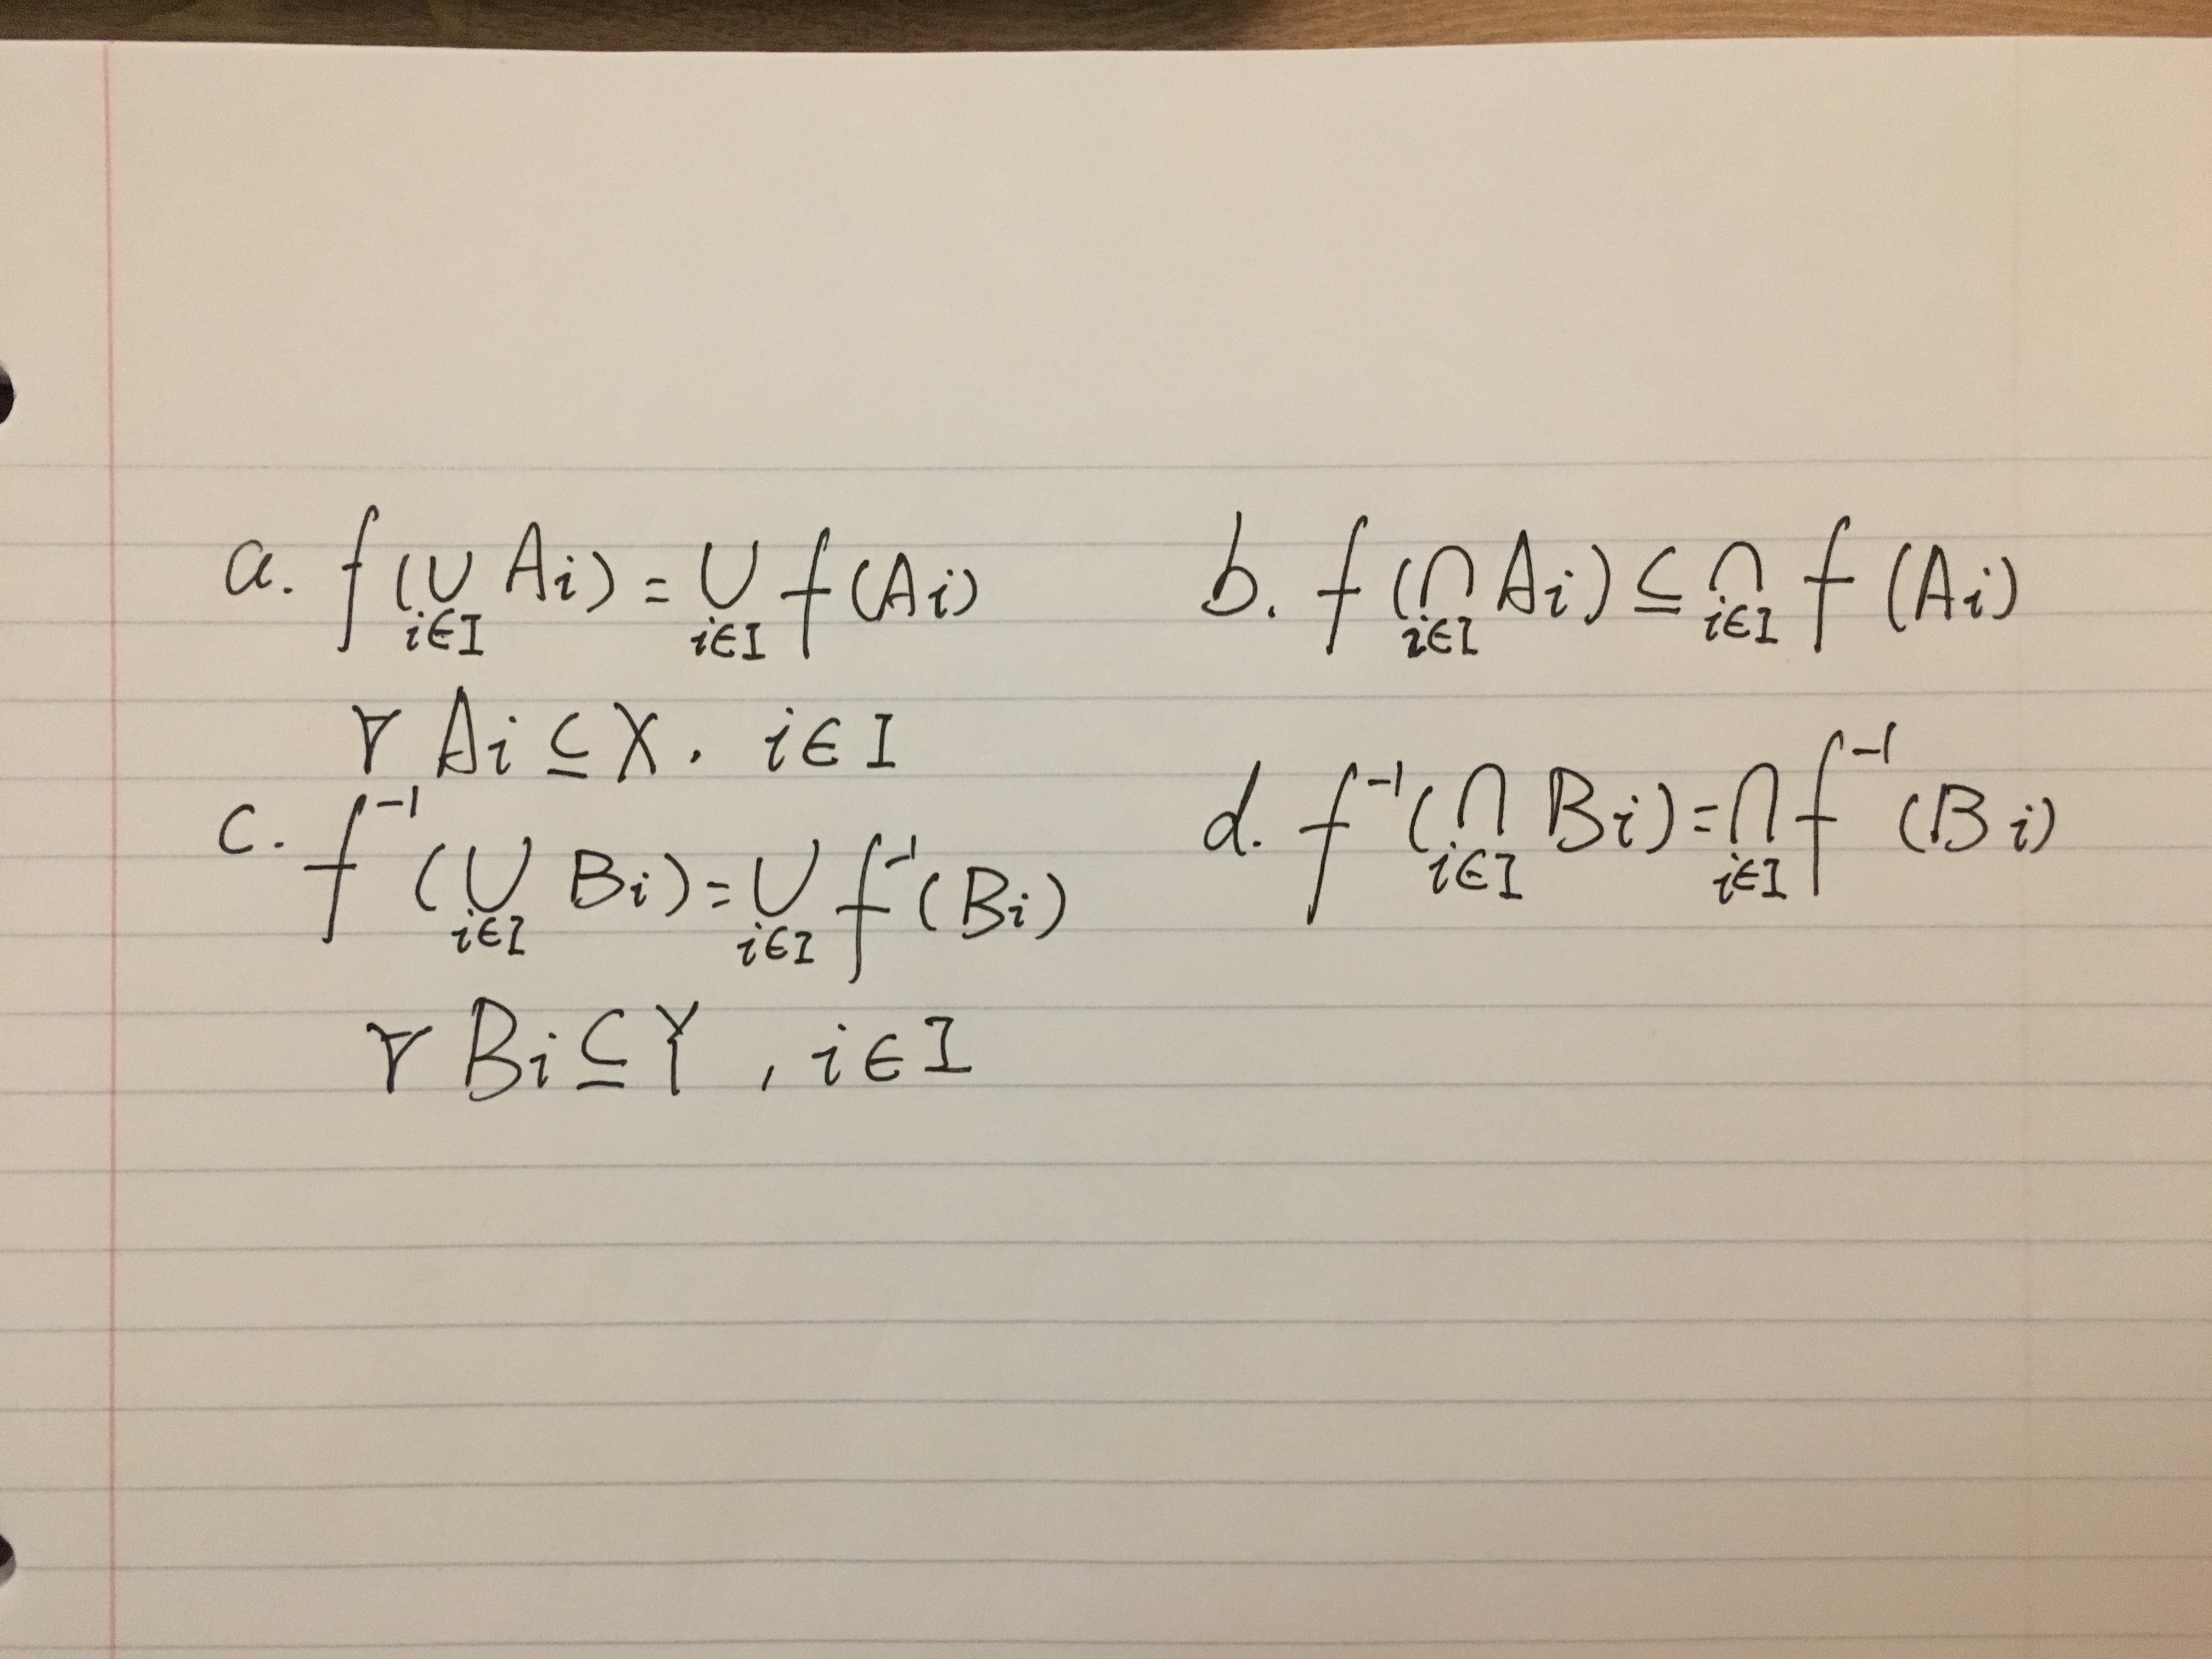 a. f(⋃_{i∈I} A_i) = ⋃_{i∈I} f(A_i) b. f(⋂_{i∈I} A_i) ⊆ ⋂_{i∈I} f(A_i)
∀ A_i ⊆ X. i∈I
c. f^{-1}(⋃_{i∈I} B_i) = ⋃_{i∈I} f^{-1}(B_i) d. f^{-1}(⋂_{i∈I} B_i) = ⋂_{i∈I} f^{-1}(B_i)
∀ B_i ⊆ Y, i∈I